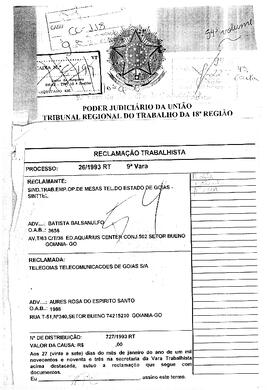 54º volume
PODER JUDICIÁRIO DA UNIÃO
TRIBUNAL REGIONAL DO TRABALHO DA 18ª REGIÃO
RECLAMAÇÃO TRABALHISTA
PROCESSO: 26/1993 RT 9ª Vara
RECLAMANTE:
SIND.TRAB.EMP.OP.DE MESAS TEL.DO ESTADO DE GOIAS -
SINTTEL
ADV...: BATISTA BALSANULFO
O.A.B.: 3656
AV,T/63 C/E/36 ED.AQUARIUS CENTER CONJ.502 SETOR BUENO
GOIANIA-GO
RECLAMADA:
TELEGOIAS TELECOMUNICAÇOES DE GOIAS S/A
ADV...: AURES ROSA DO ESPIRITO SANTO
O.A.B.: 1986
RUA T-51,Nº340,SETOR BUENO 74215210 GOIANIA-GO
Nº DE DISTRIBUIÇÃO: 727/1993 RT
VALOR DA CAUSA: R$ ,00
Aos 27 (vinte e sete) dias do mês de janeiro do ano de um mil
novecentos e noventa e três na secretaria da Vara Trabalhista
acima destacada, autuo a reclamação que segue com
documentos.
Eu, assino este termo.